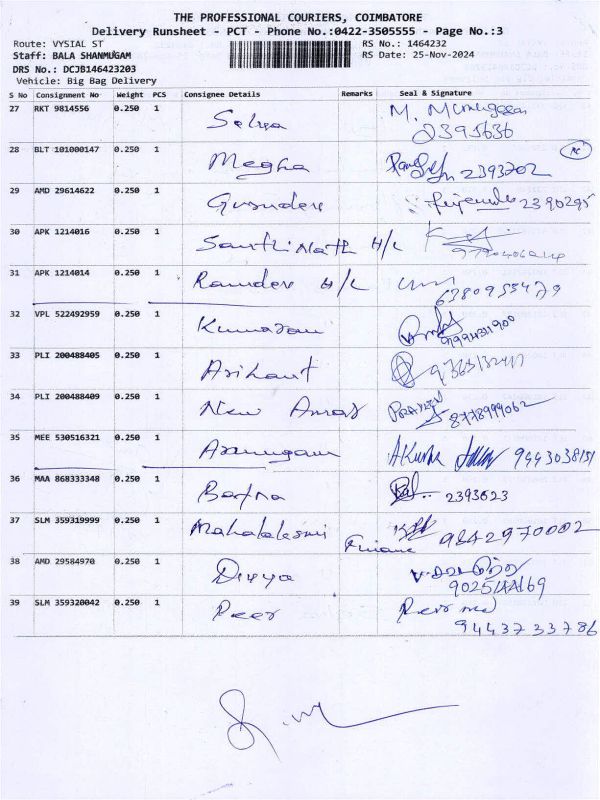 THE PROFESSIONAL COURIERS, COIMBATORE
Delivery Runsheet - PCT - Phone No.:0422-3505555 - Page No.:3
Route: VYSIAL ST RS No.: 1464232
Staff: BALA SHANMUGAM RS Date: 25-Nov-2024
DRS No.: DCJB146423203
Vehicle: Big Bag Delivery
S No Consignment No Weight PCS Consignee Details Remarks Seal & Signature
27 RKT 9814556 0.250 1
2395636
28 BLT 101000147 0.250 1 Megha 2393702
29 AMD 29614622 0.250 1 2390295
30 APK 1214016 0.250 1 Santhi Nath H/L
31 APK 1214014 0.250 1 Ramdev H/L
6380955479
32 VPL 522492959 0.250 1 Kumaran
33 PLI 200488405 0.250 1 Arihant
34 PLI 200488409 0.250 1 New Amar PRAVEEN
8778999062
35 MEE 530516321 0.250 1 Arumugam 9443038151
36 MAA 868333348 0.250 1 2393623
37 SLM 359319999 0.250 1 Mahalakshmi Finance 9842970002
38 AMD 29584970 0.250 1 Divya
39 SLM 359320042 0.250 1 Peer Peer md
9443733786